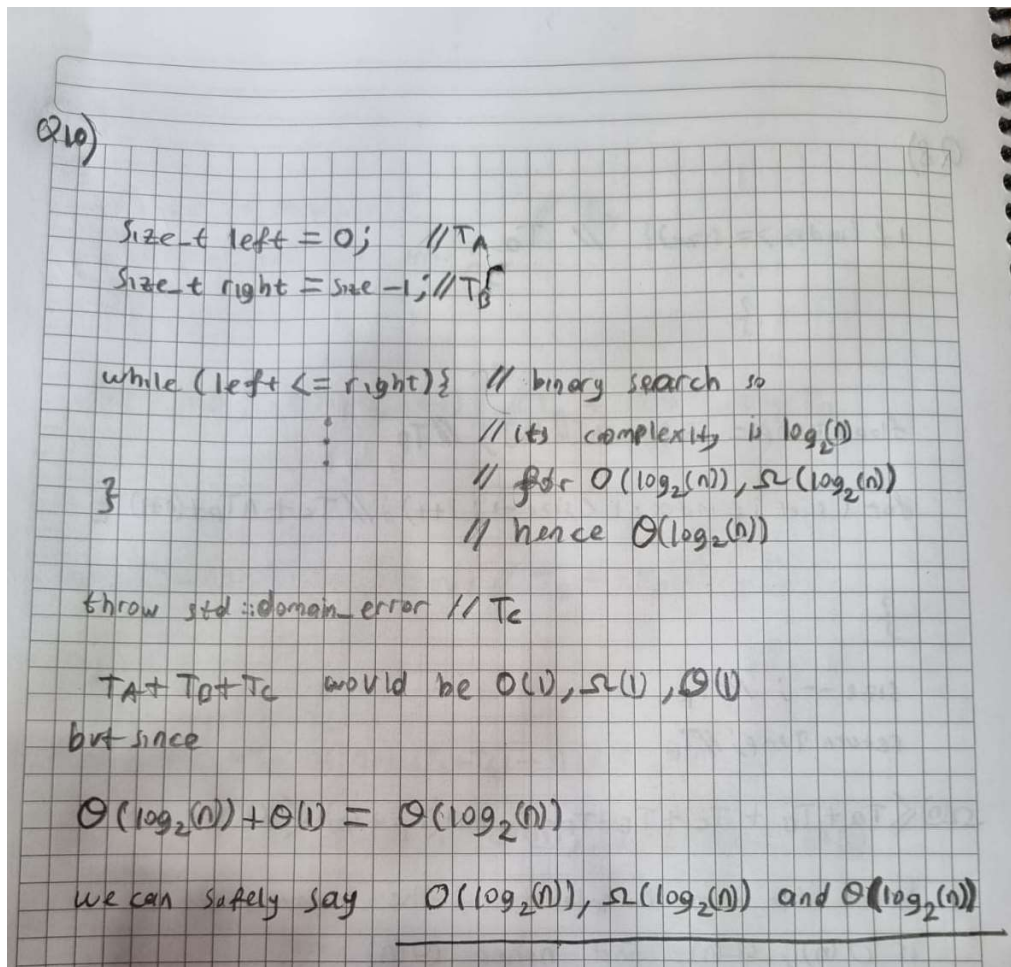 Q10)
size_t left = 0; // T_A
size_t right = size -1; // T_B
while (left <= right) { // binary search so
// its complexity is log₂(n)
} // for O(log₂(n)), Ω(log₂(n))
// hence Θ(log₂(n))
throw std::domain_error // T_C
T_A + T_B + T_C would be O(1), Ω(1), Θ(1)
but since
Θ(log₂(n)) + Θ(1) = Θ(log₂(n))
we can safely say O(log₂(n)), Ω(log₂(n)) and Θ(log₂(n))